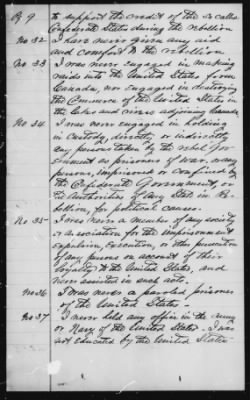 P 9 to support the credit of the so called
Confederate States during the rebellion
No 32 I have never given any aid
and comfort to the rebellion
No 33 I was never engaged in making
raids into the United States from
Canada, nor engaged in destroying
the Commerce of the United States in
the lakes and rivers adjoining Canada
No 34 I was never engaged in holding
in custody, directly or indirectly
any persons taken by the rebel Gov
ernment as prisoners of war, or any
persons, imprisoned or confined by
the Confederate Government, or
the Authorities of any State in Re
bellion, for political causes
No 35 I was never a member of any society
or association for the imprisonment
expulsion, execution, or other persecution
of any persons on account of their
loyalty to the United States, and
never assisted in such acts.
No 36 I was never a paroled prisoner
of the United States.
No 37 I never held any office in the army
or Navy of the United States. I was
not educated by the United States